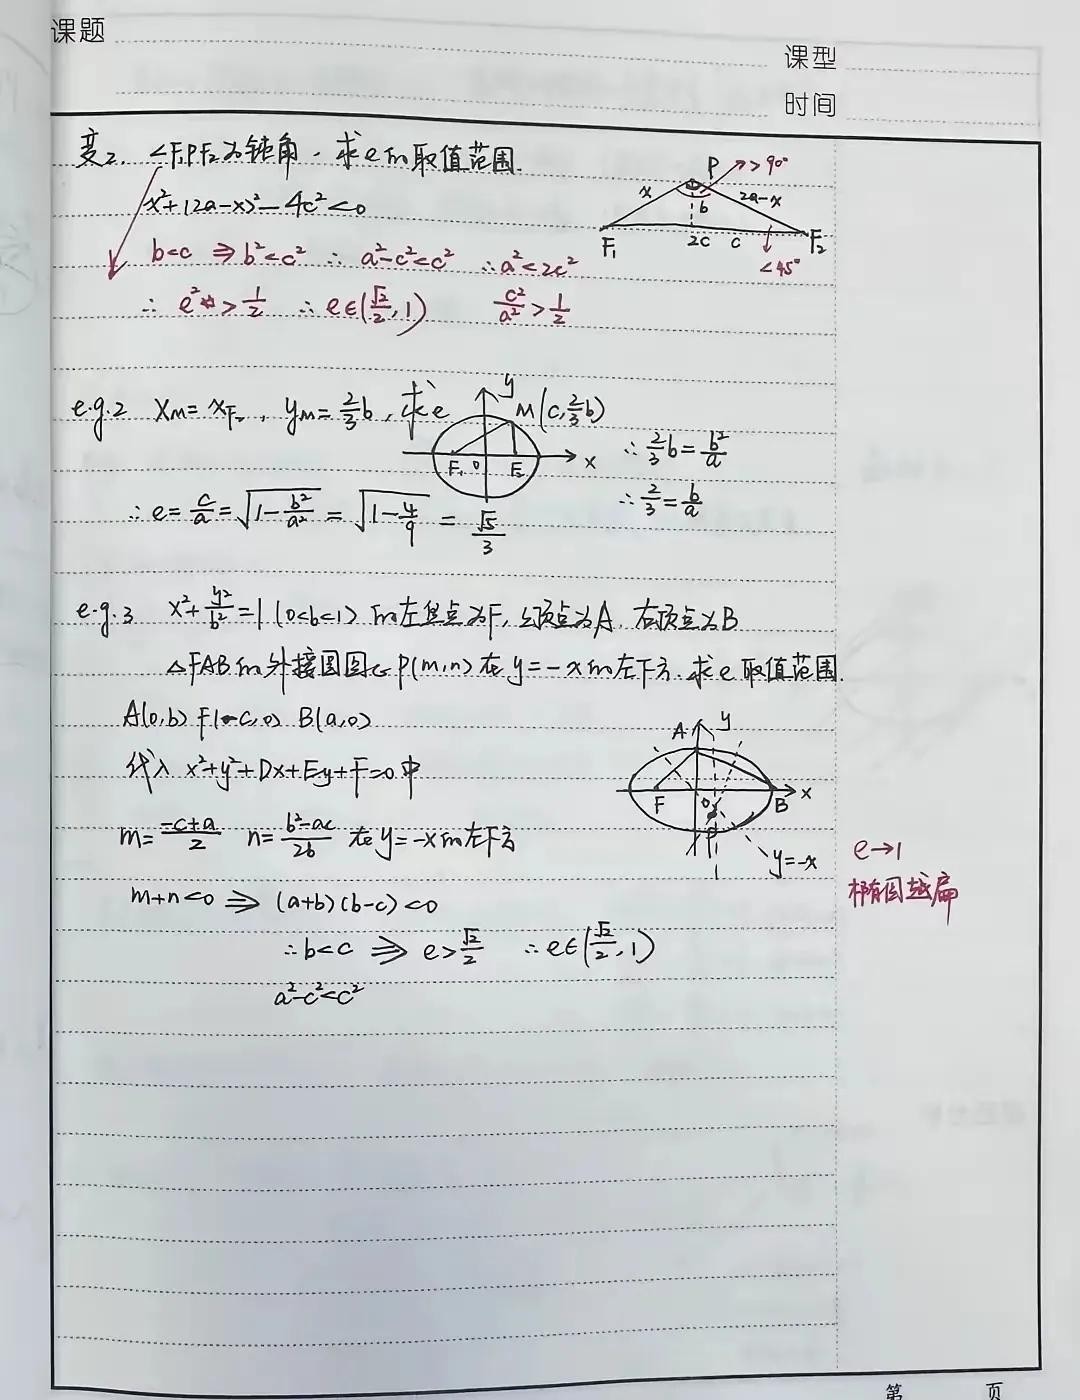 课题
课型
时间
变2. ∠F₁PF₂为钝角. 求e的取值范围.
x²+(2a-x)²-4c²<0
b<c ⇒ b²<c² ∴ a²-c²<c² ∴ a²<2c²
∴ e²>1/2 ∴ e∈(√2/2, 1) c²/a²>1/2
P >90°
x b 2a-x
F₁ 2c c F₂
<45°
e.g.2 x_M=x_F₂, y_M=2/3b, 求e
y M(c, 2/3b)
F₁ O F₂ x
∴ 2/3b=b²/a
∴ 2/3=b/a
∴ e=c/a=√(1-b²/a²)=√(1-4/9)=√5/3
e.g.3 x²+y²/b²=1 (0<b<1) 的左焦点为F, 上顶点为A. 右顶点为B
△FAB的外接圆圆心P(m,n)在y=-x的左下方. 求e取值范围.
A(0,b) F(-c,0) B(a,0)
代入 x²+y²+Dx+Ey+F=0中
m=(-c+a)/2 n=(b²-ac)/2b 在y=-x的左下方
m+n<0 ⇒ (a+b)(b-c)<0
∴ b<c ⇒ e>√2/2 ∴ e∈(√2/2, 1)
a²-c²<c²
A y
F O B x
P
y=-x
e→1
椭圆越扁
第 页